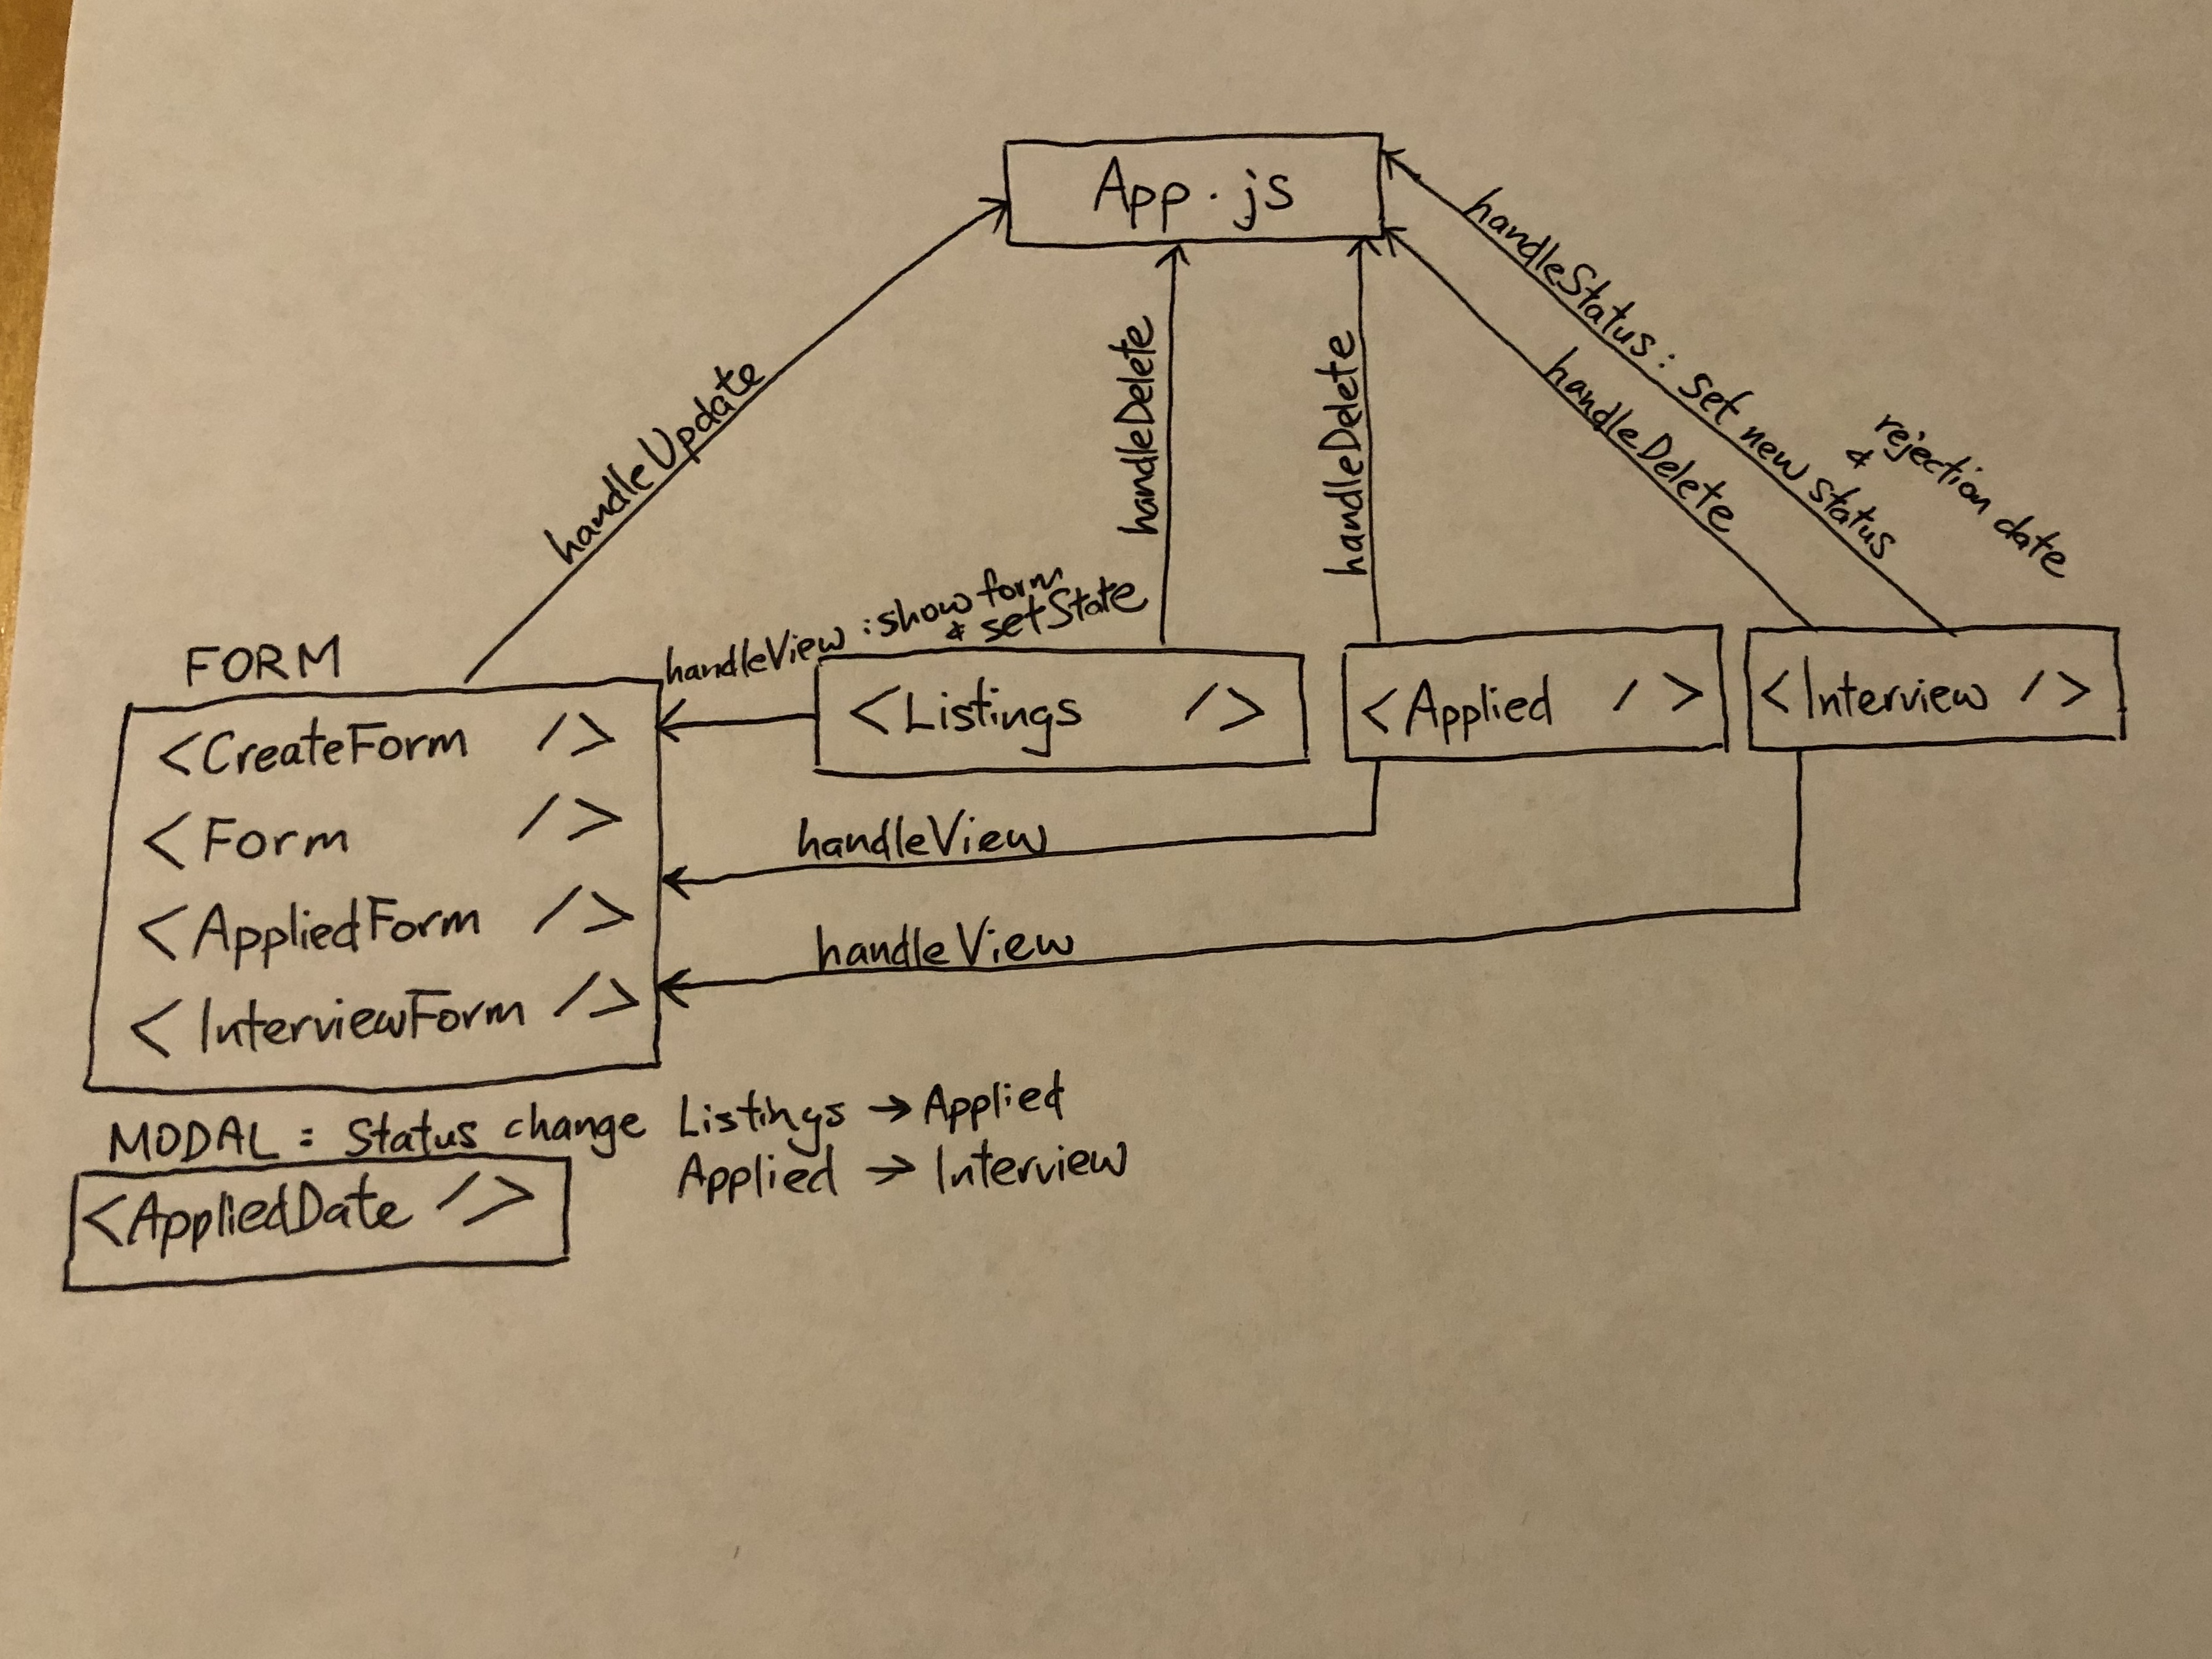 App.js
handleStatus: set new status
& rejection date
handleDelete
handleDelete
handleDelete
handleUpdate
handleView : show form
& setState
FORM
<CreateForm />
<Form />
<AppliedForm />
<InterviewForm />
<Listings />
<Applied />
<Interview />
handleView
handleView
MODAL = Status change Listings → Applied
Applied → Interview
<AppliedDate />